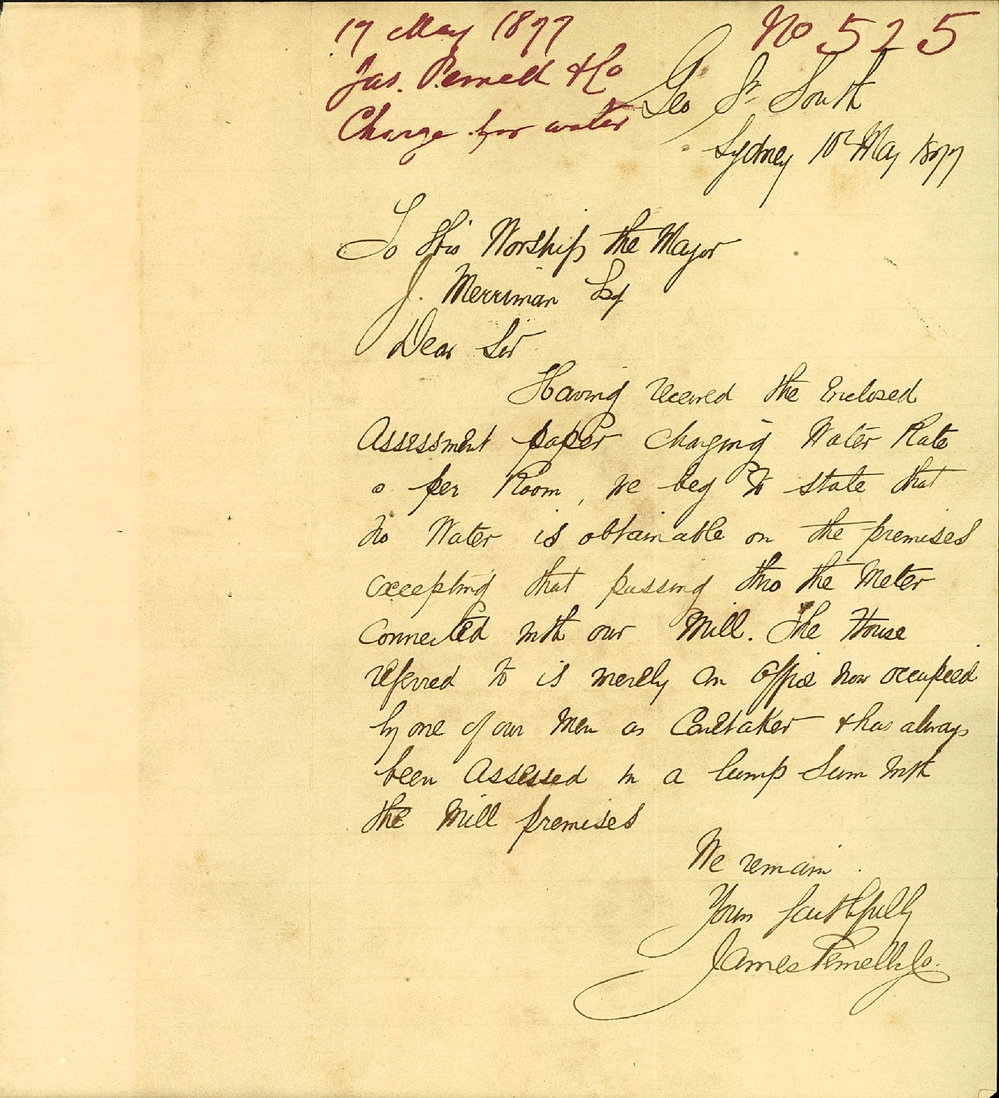 17 May 1877
Jas. Pemell & Co
Charge for water
No 525
Geo St South
Sydney 10th May 1877
To His Worship the Mayor
J. Merriman Esq
Dear Sir
Having received the Enclosed
Assessment paper charging Water Rate
per Room, we beg to state that
no Water is obtainable on the premises
excepting that passing thro the Meter
Connected with our Mill. The House
referred to is merely an Office now occupied
by one of our Men as Caretaker & has always
been Assessed in a lump Sum with
the Mill premises
We remain
Yours faithfully
James Pemell & Co.